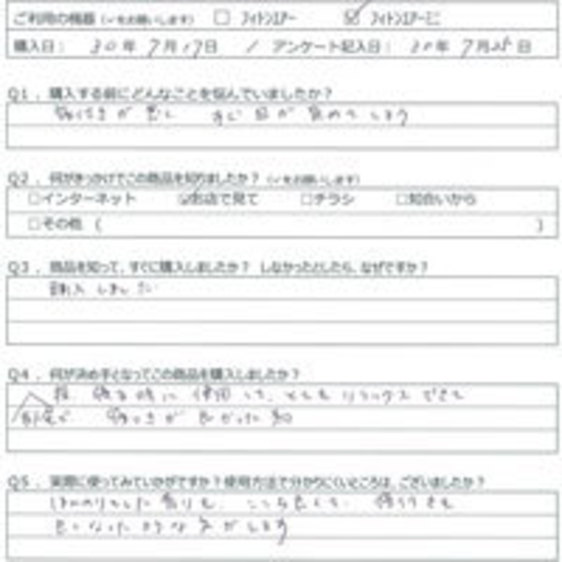 ご利用の機器（✓をお願いします） □ フィトンエアー ☑ フィトンエアーミニ
購入日： 30年 7月17日 / アンケート記入日： 30年 7月25日
Q1．購入する前にどんなことを悩んでいましたか？
寝付きが悪く すぐ目が覚めてしまう
Q2．何がきっかけでこの商品を知りましたか？（✓をお願いします）
□インターネット ☑お店で見て □チラシ □知合いから
□その他（ ）
Q3．商品を知って、すぐに購入しましたか？ しなかったとしたら、なぜですか？
購入しました
Q4．何が決め手となってこの商品を購入しましたか？
夜 寝る時に使用して、とてもリラックスできて
寝つきが良かった為
Q5．実際に使ってみていかがですか？使用方法で分かりにくいところは、ございましたか？
ほんのりとした香りも、ここち良くて、寝つきも
良くなったような気がします